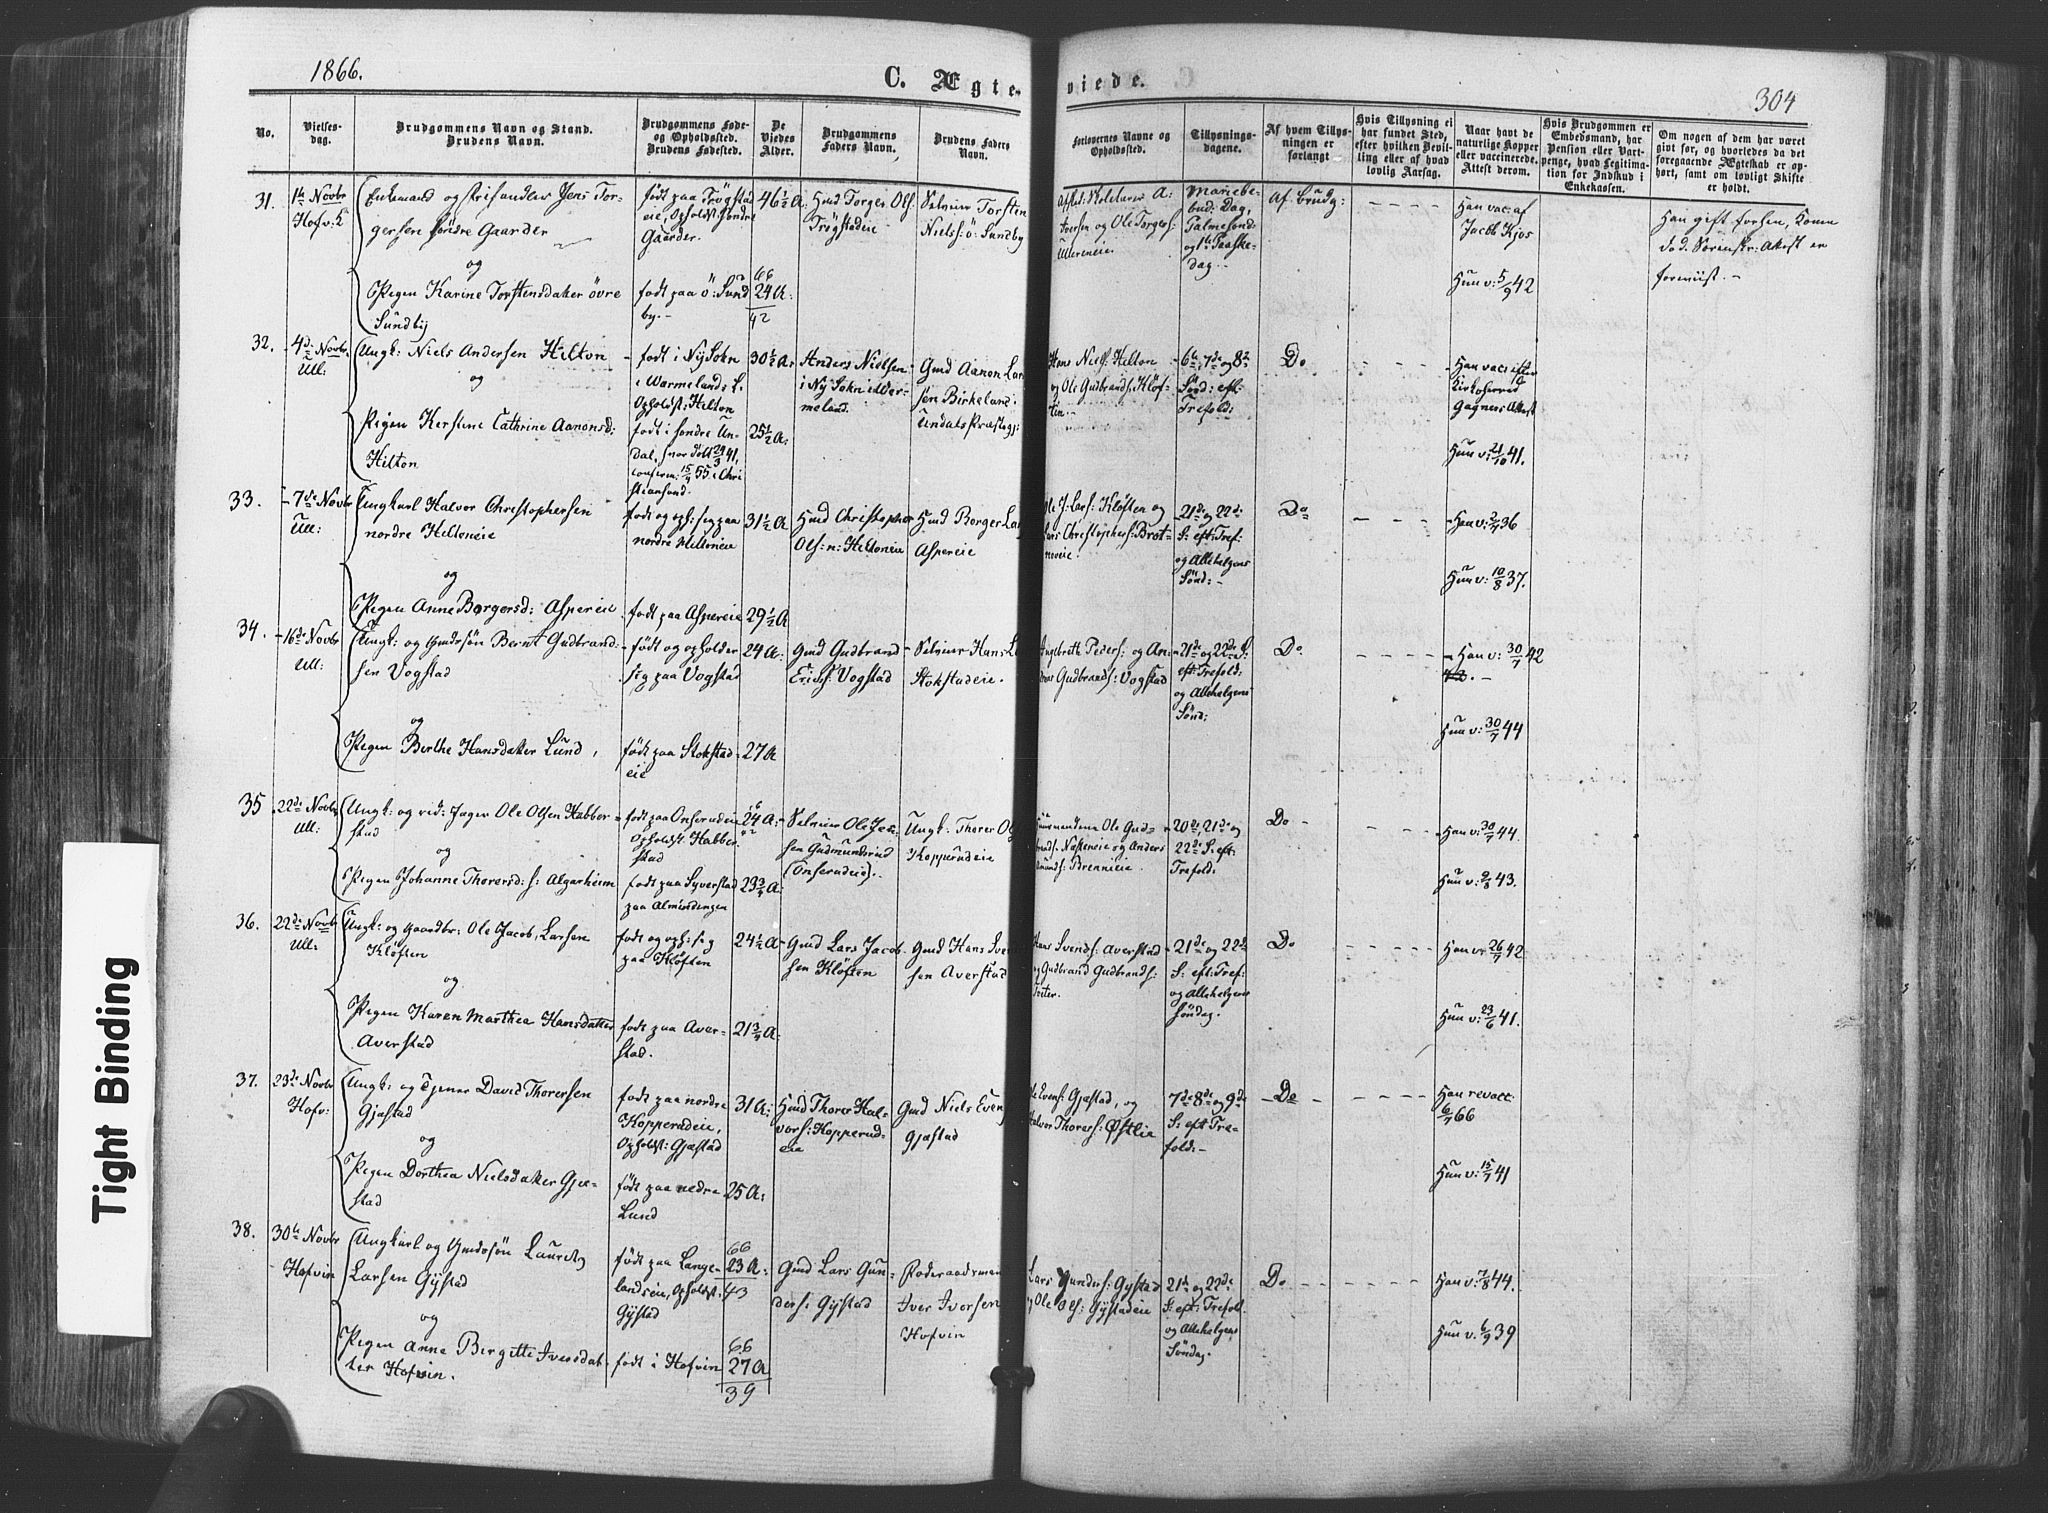 1866.
C. Ægte
viede.
304
No.
Vielses-
dag.
Brudgommens Navn og Stand.
Brudens Navn.
Brudgommens Føde-
og Opholdssted.
Brudens Fødested.
De
Viedes
Alder.
Brudgommens
Faders Navn.
Brudens Faders
Navn.
Forlovernes Navne og
Opholdssted.
Tillysnings-
dagene.
Af hvem Tillys-
ningen er
forlangt
Hvis Tillysning ei
har fundet Sted,
efter hvilken Bevil-
ling eller af hvad
lovlig Aarsag.
Naar havt de
naturlige Kopper
eller vaccinerede.
Attest derom.
Hvis Brudgommen er
Embedsmand, har
Pension eller Vart-
penge, hvad Legitima-
tion for Indskud i
Enkekassen.
Om nogen af dem har været
gift før, og hvorledes da det
foregaaende Ægteskab er op-
hørt, samt om lovligt Skifte
er holdt.
31.
1te Novbr
Hofv: K
Enkemand og Jens Tor-
gersen søndre Gaarder
og
Pigen Karine Torstensdatter övre
Sundby
født paa Trögstad
eie, Opholdst: søndre
Gaarder.
født paa ö: Sund
by.-
46½ A.
66
24 A:
42
Hmd Torger Ols.
Trögstadeie
Selveier Torsten
Niels: ö: Sundby
Iversen og Ole Torgers:
Ullereneie
Mariebe-
bud: Dag,
Palmesönd:
og 1te Paaske-
dag.-
Af Brudg:
Han vac: af
Jacob Kjos
Hun v: 5/9 42
Han gift forhen, Konen
död. Sorenskr: Attest er
foreviist.-
32.
4de Novbr.
Ull:
Ungk: Niels Andersen Hilton
og
Pigen Kerstine Cathrine Aanonsd:
Hilton
født i Ny Sokn
i Warmeland S.
Opholdst: Hilton
født i søndre Un-
dal, hvor döbt 29/3 41,
confirm: 15/4 55 i Chri
stiansand.
30½ A:
25½ A:
Anders Nielsen
i Ny Sokn i Wer-
meland.
Gmd Aanon Lar
sen Birkeland
Undals Præstegj:
Hans Niels: Hilton
og Ole Gudbrands: Klöf-
tin.-
6te, 7de og 8de
Sönd: eft:
Trefold:
Do
Han vac: efter
Kirkeherred
Gagners Attest
Hun v: 21/10 41.
33.
7de Novbr
Ull:
Ungkarl Halvor Christophersen
nordre Hiltoneie
og
Pigen Anne Borgersd: Aspereie
født og oph: sig paa
nordre Hiltoneie
født paa Aspereie
31½ A
29½ A
Hmd Christopher
Ols: n: Hiltoneie
Hmd Borger Lars
Aspereie
Ole J: Lars: Klöften og
Lars Christophers: Brot-
neeie.
21de og 22de
S: eft: Tref:
og Allehelgens
Sönd:-
Do
Han v: 2/7 36
Hun v: 10/8 37.
34.
16de Novbr
Ull:
Ungk: og Gmdssön Bernt Gudbrand-
sen Vogstad
og
Pigen Berthe Hansdatter Lund,
født og opholder
sig paa Vogstad
født paa Stokstad-
eie
24 A:
27 A
Gmd Gudbrand
Erics: Vogstad
Selveier Hans L
Stokstadeie.
Ingebreth Peders: og An-
Gudbrands: Vogstad
21de og 22de S.
eft: Trefold:
og Allehelgens
Sönd:
Do
Han v: 30/7 42
42.-
Hun v: 30/7 44
35
22de Novbr
Ull:
Ungk: og rid: Jæger Ole Olsen Habber-
stad
og
Pigen Johanne Thorersd: s: Algarheim
født paa Onserudeie
Opholdst: Habber
stad
født paa Syverstad
paa Almindingen
24 A:
23¾ A:
Selveier Ole Jen-
sen Gudmundsrud
(Onserudeie).
Ungk: Thorer Ols
Kopperudeie
Huusmændene Ole Gud-
brands: Næseneie og Anders
Amunds: Brennieie.
20de, 21de og
22de S: eft:
Trefold:
Do
Han v: 30/7 44.
Hun v: 9/8 43.
36.
22de Novbr
Ull:
Ungk: og Gaardbr: Ole Jacob Larsen
Klöften
og
Pigen Karen Marthea Hansdatter
Averstad
født og oph: sig
paa Klöften
født paa Aver-
stad.
24½ A
21¾ A:
Gmd Lars Jacob
sen Klöften
Gmd Hans Sven
sen Averstad
Hans Svends: Averstad
og Gudbrand Gudbrands:
21de og 22de
S: eft: Tref:
og Allehelgens
söndag.
Do
Han v: 26/7 42
Hun v: 23/6 41.
37.
23de Novbr
Hofv:
Ungk: og Tjener David Thorersen
Gjæstad
og
Pigen Dorthea Nielsdatter Gjæ-
stad
født paa nordre
Kopperudeie,
Opholdst: Gjæstad
født paa nedre
Lund
31 A:
25 A:
Hmd Thorer Hal-
vors: Kopperud-
eie
Gmd Niels Even
Gjæstad
Ole Evens: Gjæstad, og
Halvor Thorers: Østlie
7de 8de og 9de
S: eft Tre-
fold:-
Do
Han revacc:
6/7 66
Hun v: 15/7 41
38.
30te Novbr
Hofvin
Ungkarl og Gmdssön Lauritz
Larsen Gystad
og
Pigen Anne Birgitte Iversdat-
ter Hofvin.
født paa Lange-
landseie, Opholdst:
Gystad
født i Hofvin
66
23 A:
43
66
27 A
39
Gmd Lars Gun-
ders: Gystad
Roderaadsmand
Iver Iversen
Hofvin
Lars Gunders: Gystad
og Ole Ols: Gystadeie
21de og 22de
S: eft: Trefold
og Allehelgens
Söndag.
Do
Han v: 7/8 44.
Hun v. 6/9 39
Tight Binding